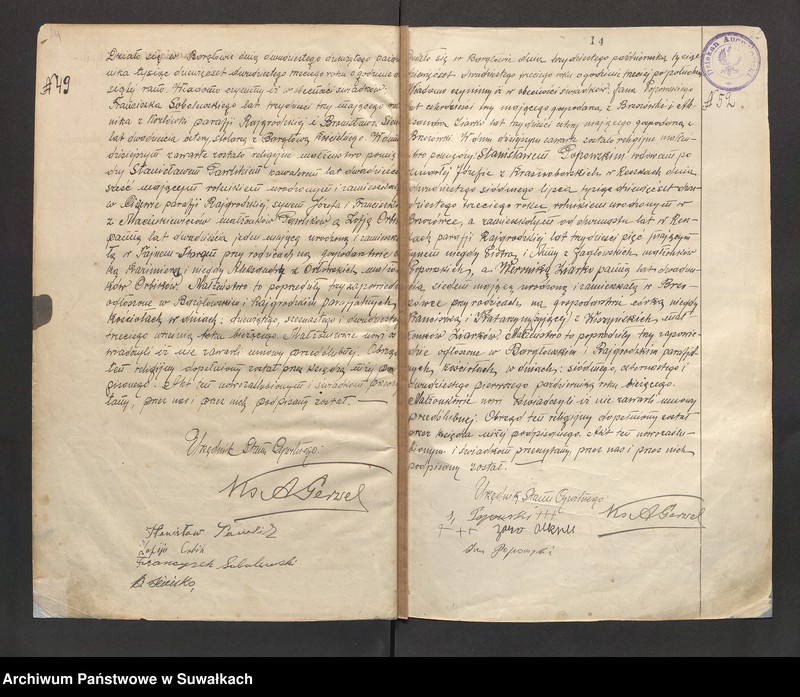 № 49
Działo się w Bargłowie dnia dwunastego
nika tysiąc dziewięćset dwudziestego trzeciego roku o godzinie
rano. Wiadomo czynimy iż w obecności świadków
Franciszka Sobolewskiego lat trzydzieści trzy mającego rol
nika z parafji Rajgrodzkiej i Bronisława
lat dwadzieścia cztery z Bargłowa Kościelnego. W dniu
dzisiejszym zawarte zostało religijne małżeństwo pomię
dzy Stanisławem Pawlikiem kawalerem lat dwadzieścia
sześć mającym rolnikiem urodzonym i zamieszkałym
w parafji Rajgrodzkiej synem Józefa i Franciszki
z małżonków Pawlików, a Zofją Orbik
panną lat dwadzieścia jeden mającą urodzoną i zamieszka
łą w Tajnem Starem przy rodzicach na gospodarstwie
ką Kazimierza i niegdy Aleksandry z małżon
ków Orbików. Małżeństwo to poprzedziły trzy zapowiedzie
ogłoszone w Bargłowskim i Rajgrodzkim parafjalnych
Kościołach w dniach: dziewiątego, szesnastego i dwudziestego
trzeciego września roku bieżącego. Małżonkowie nowi
iż nie zawarli umowy przedślubnej. Obrzęd
ten religijny dopełniony został przez księdza niżej pod
pisanego. Akt ten nowozaślubionym i świadkom przeczy
tany, przez nas i przez nich podpisany został.
Urzędnik Stanu Cywilnego:
Ks A Gerwel
Stanisław Pawlik
Zofija Orbik
Franciszek Sobolewski
14
№ 52.
Działo się w Bargłowie dnia trzydziestego października tysiąc
dziewięćset dwudziestego trzeciego roku o godzinie trzeciej po południu
Wiadomo czynimy iż w obecności świadków, Jana Popowskiego
lat czterdzieści trzy mającego gospodarza z i
Ziarki lat trzydzieści cztery mającego gospodarza z
W dniu dzisiejszym zawarte zostało religijne małżeń
stwo pomiędzy: Stanisławem Popowskim wdowcem po
zmarłej Józefie z w Reszkach dnia
dwudziestego siódmego lipca tysiąc dziewięćset dwu
dziestego trzeciego roku rolnikiem urodzonym w
a zamieszkałym od lat w Resz
kach parafji Rajgrodzkiej lat trzydzieści pięć mającym
synem niegdy Piotra i Anny z małżonków
Popowskich, a Weroniką Ziarko panną lat dwadzie
ścia siedem mającą urodzoną i zamieszkałą w
przy rodzicach na gospodarstwie córką niegdy
i Katarzyny żyjącej z mał
żonków Ziarków. Małżeństwo to poprzedziły trzy zapowie
dzie ogłoszone w Bargłowskim i Rajgrodzkim parafjal
nych Kościołach w dniach: siódmego, czternastego i
dwudziestego pierwszego października roku bieżącego.
Małżonkowie nowi oświadczyli iż nie zawarli umowy
przedślubnej. Obrzęd ten religijny dopełniony został
przez księdza niżej podpisanego. Akt ten nowozaślu
bionym i świadkom przeczytany, przez nas i przez nich
podpisany został.
Urzędnik Stanu Cywilnego:
Ks A Gerwel
S, Popowski +++
+ + +
Jan Popowski
Archiwum Państwowe w Suwałkach